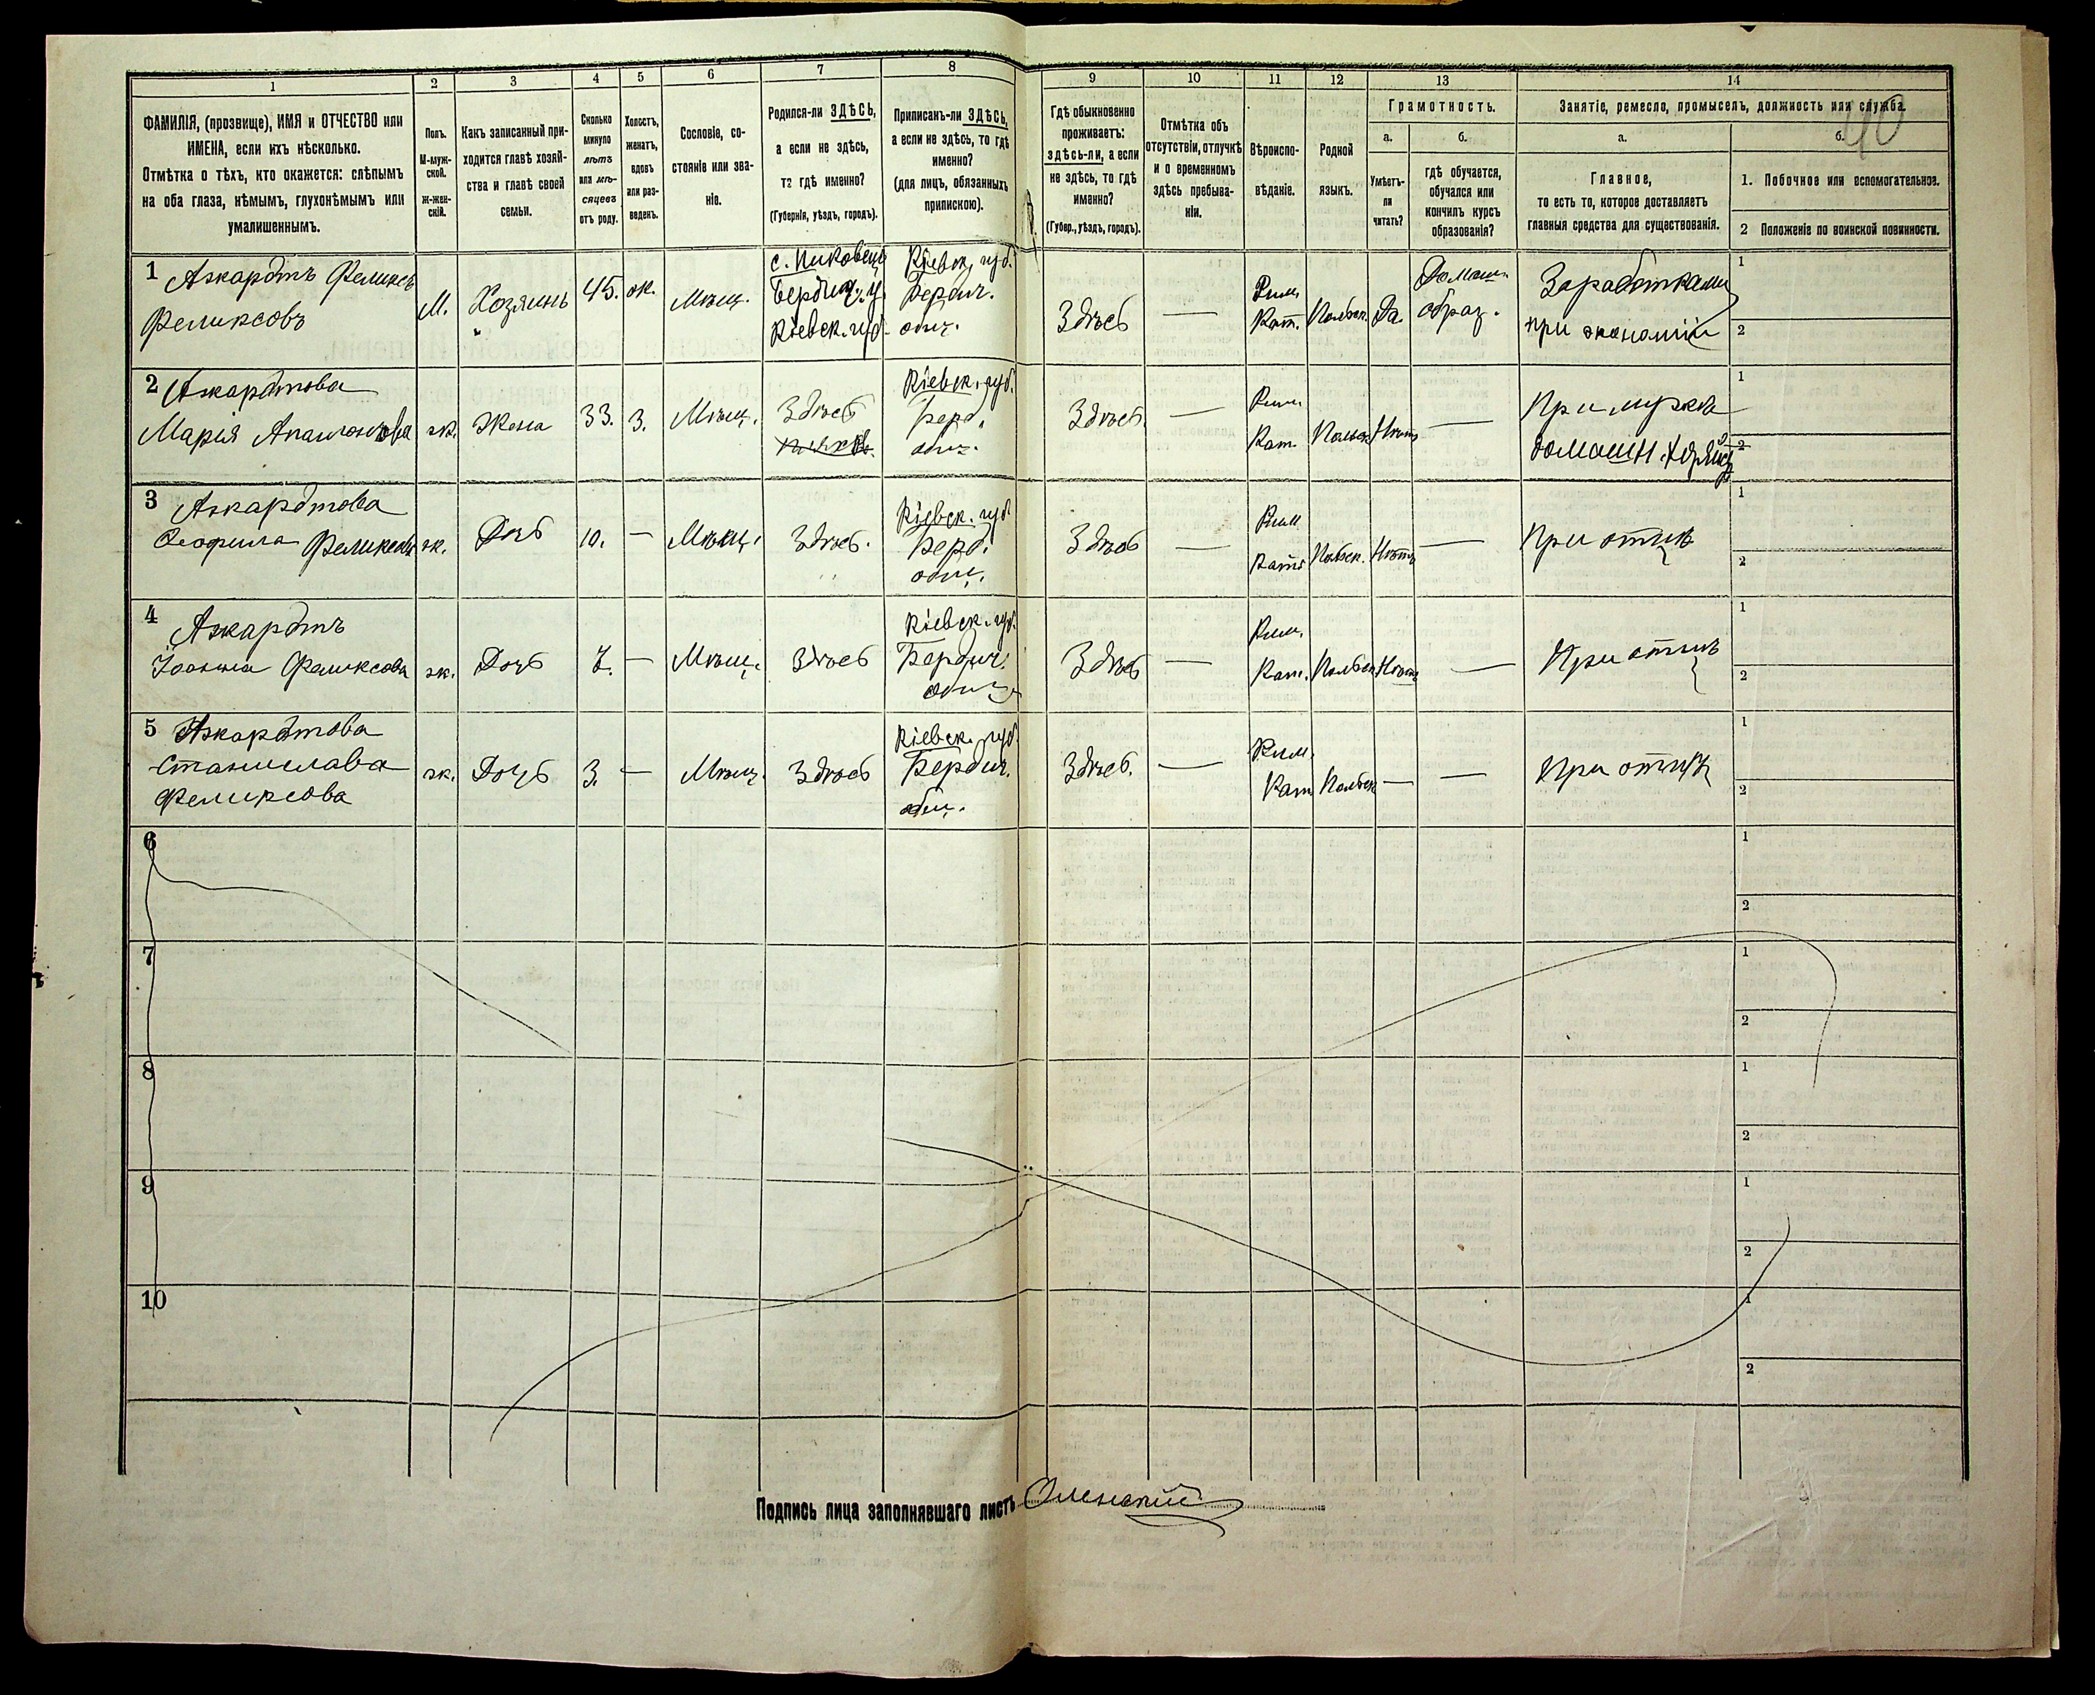 1
2
3
4
5
6
7
8
9
10
11
12
13
14
ФАМИЛІЯ, (прозвище), ИМЯ и ОТЧЕСТВО или
ИМЕНА, если ихъ нѣсколько.
Отмѣтка о тѣхъ, кто окажется: слѣпымъ
на оба глаза, нѣмымъ, глухонѣмымъ или
умалишеннымъ.
Полъ.
М-муж-
ской.
Ж-жен-
скій.
Какъ записанный при-
ходится главѣ хозяй-
ства и главѣ своей
семьи.
Сколько
минуло
лѣтъ
или мѣ-
сяцевъ
отъ роду.
Холостъ,
женатъ,
вдовъ
или раз-
веденъ.
Сословіе, со-
стояніе или зва-
ніе.
Родился-ли ЗДѢСЬ,
а если не здѣсь,
то гдѣ именно?
(Губернія, уѣздъ, городъ).
Приписанъ-ли ЗДѢСЬ,
а если не здѣсь, то гдѣ
именно?
(для лицъ, обязанныхъ
припискою).
Гдѣ обыкновенно
проживаетъ:
здѣсь-ли, а если
не здѣсь, то гдѣ
именно?
(Губер., уѣздъ, городъ).
Отмѣтка объ
отсутствіи, отлучкѣ
и о временномъ
здѣсь пребыва-
ніи.
Вѣроиспо-
вѣданіе.
Родной
языкъ.
Грамотность.
а.
б.
Умѣетъ-
ли
читать?
гдѣ обучается,
обучался или
кончилъ курсъ
образованія?
Занятіе, ремесло, промыселъ, должность или служба.
40
а.
б.
Главное,
то есть то, которое доставляетъ
главныя средства для существованія.
1. Побочное или вспомогательное.
2 Положеніе по воинской повинности.
1 Ажардтъ Феликсъ
Феликсовъ
М.
Хозяинъ
45.
ж.
Мѣщ.
с. Пиковецъ
Бердич. у.
Кіевск. губ.
Кіевск. губ.
Бердич.
общ.
Здѣсь
—
Рим.
Кат.
Польск.
Да.
Домаш.
образ.
Заработками
при экономіи
1
2
2 Ажардтова
Марія
ж.
Жена
33.
з.
Мѣщ.
Здѣсь
Кіевск. губ.
Берд.
общ.
Здѣсь
—
Рим.
Кат.
Польск.
Нѣтъ
—
При мужѣ
домашн. хозяйст.
1
2
3 Ажардтова
Теофила Феликсова
ж.
Дочь
10.
—
Мѣщ.
Здѣсь.
Кіевск. губ.
Берд.
общ.
Здѣсь
—
Рим.
Кат.
Польск.
Нѣтъ
—
При отцѣ
1
2
4 Ажардтъ
Іоанна Феликсова
ж.
Дочь
7.
—
Мѣщ.
Здѣсь
Кіевск. губ.
Бердич.
общ.
Здѣсь
—
Рим.
Кат.
Польск.
Нѣтъ
—
При отцѣ
1
2
5 Ажардтова
Станислава
Феликсова
ж.
Дочь
3.
—
Мѣщ.
Здѣсь
Кіевск. губ.
Бердич.
общ.
Здѣсь.
—
Рим.
Кат.
Польск.
—
—
При отцѣ
1
2
6
1
2
7
1
2
8
1
2
9
1
2
10
1
2
Подпись лица заполнявшаго листъ